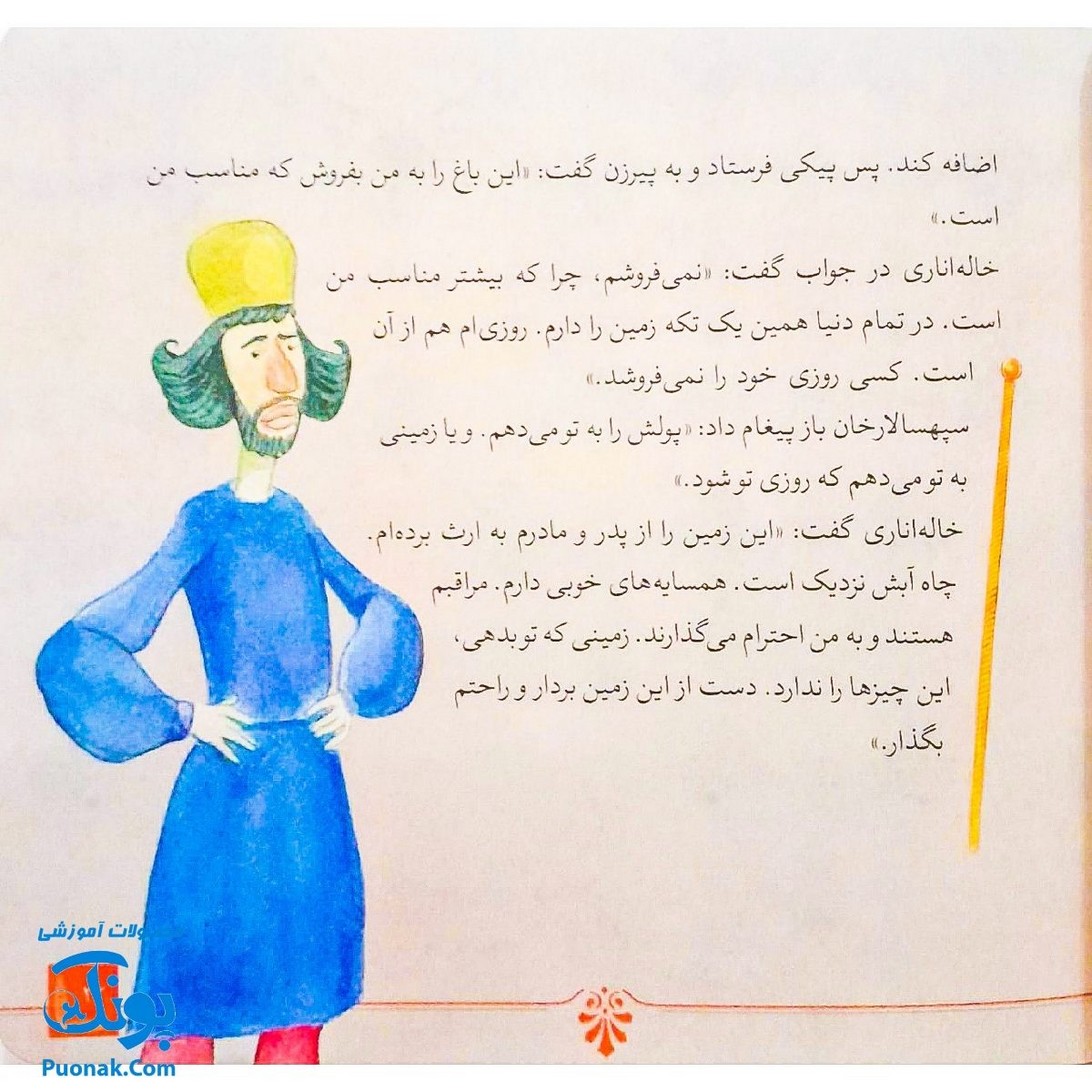 اضافه کند. پس پیکی فرستاد و به پیرزن گفت: «این باغ را به من بفروش که مناسب من
است.»
خاله‌اناری در جواب گفت: «نمی‌فروشم، چرا که بیشتر مناسب من
است. در تمام دنیا همین یک تکه زمین را دارم. روزی‌ام هم از آن
است. کسی روزی خود را نمی‌فروشد.»
سپهسالارخان باز پیغام داد: «پولش را به تو می‌دهم. و یا زمینی
به تو می‌دهم که روزی تو شود.»
خاله‌اناری گفت: «این زمین را از پدر و مادرم به ارث برده‌ام.
چاه آبش نزدیک است. همسایه‌های خوبی دارم. مراقبم
هستند و به من احترام می‌گذارند. زمینی که تو بدهی،
این چیزها را ندارد. دست از این زمین بردار و راحتم
بگذار.»
آموزشی
پونک
Puonak.Com